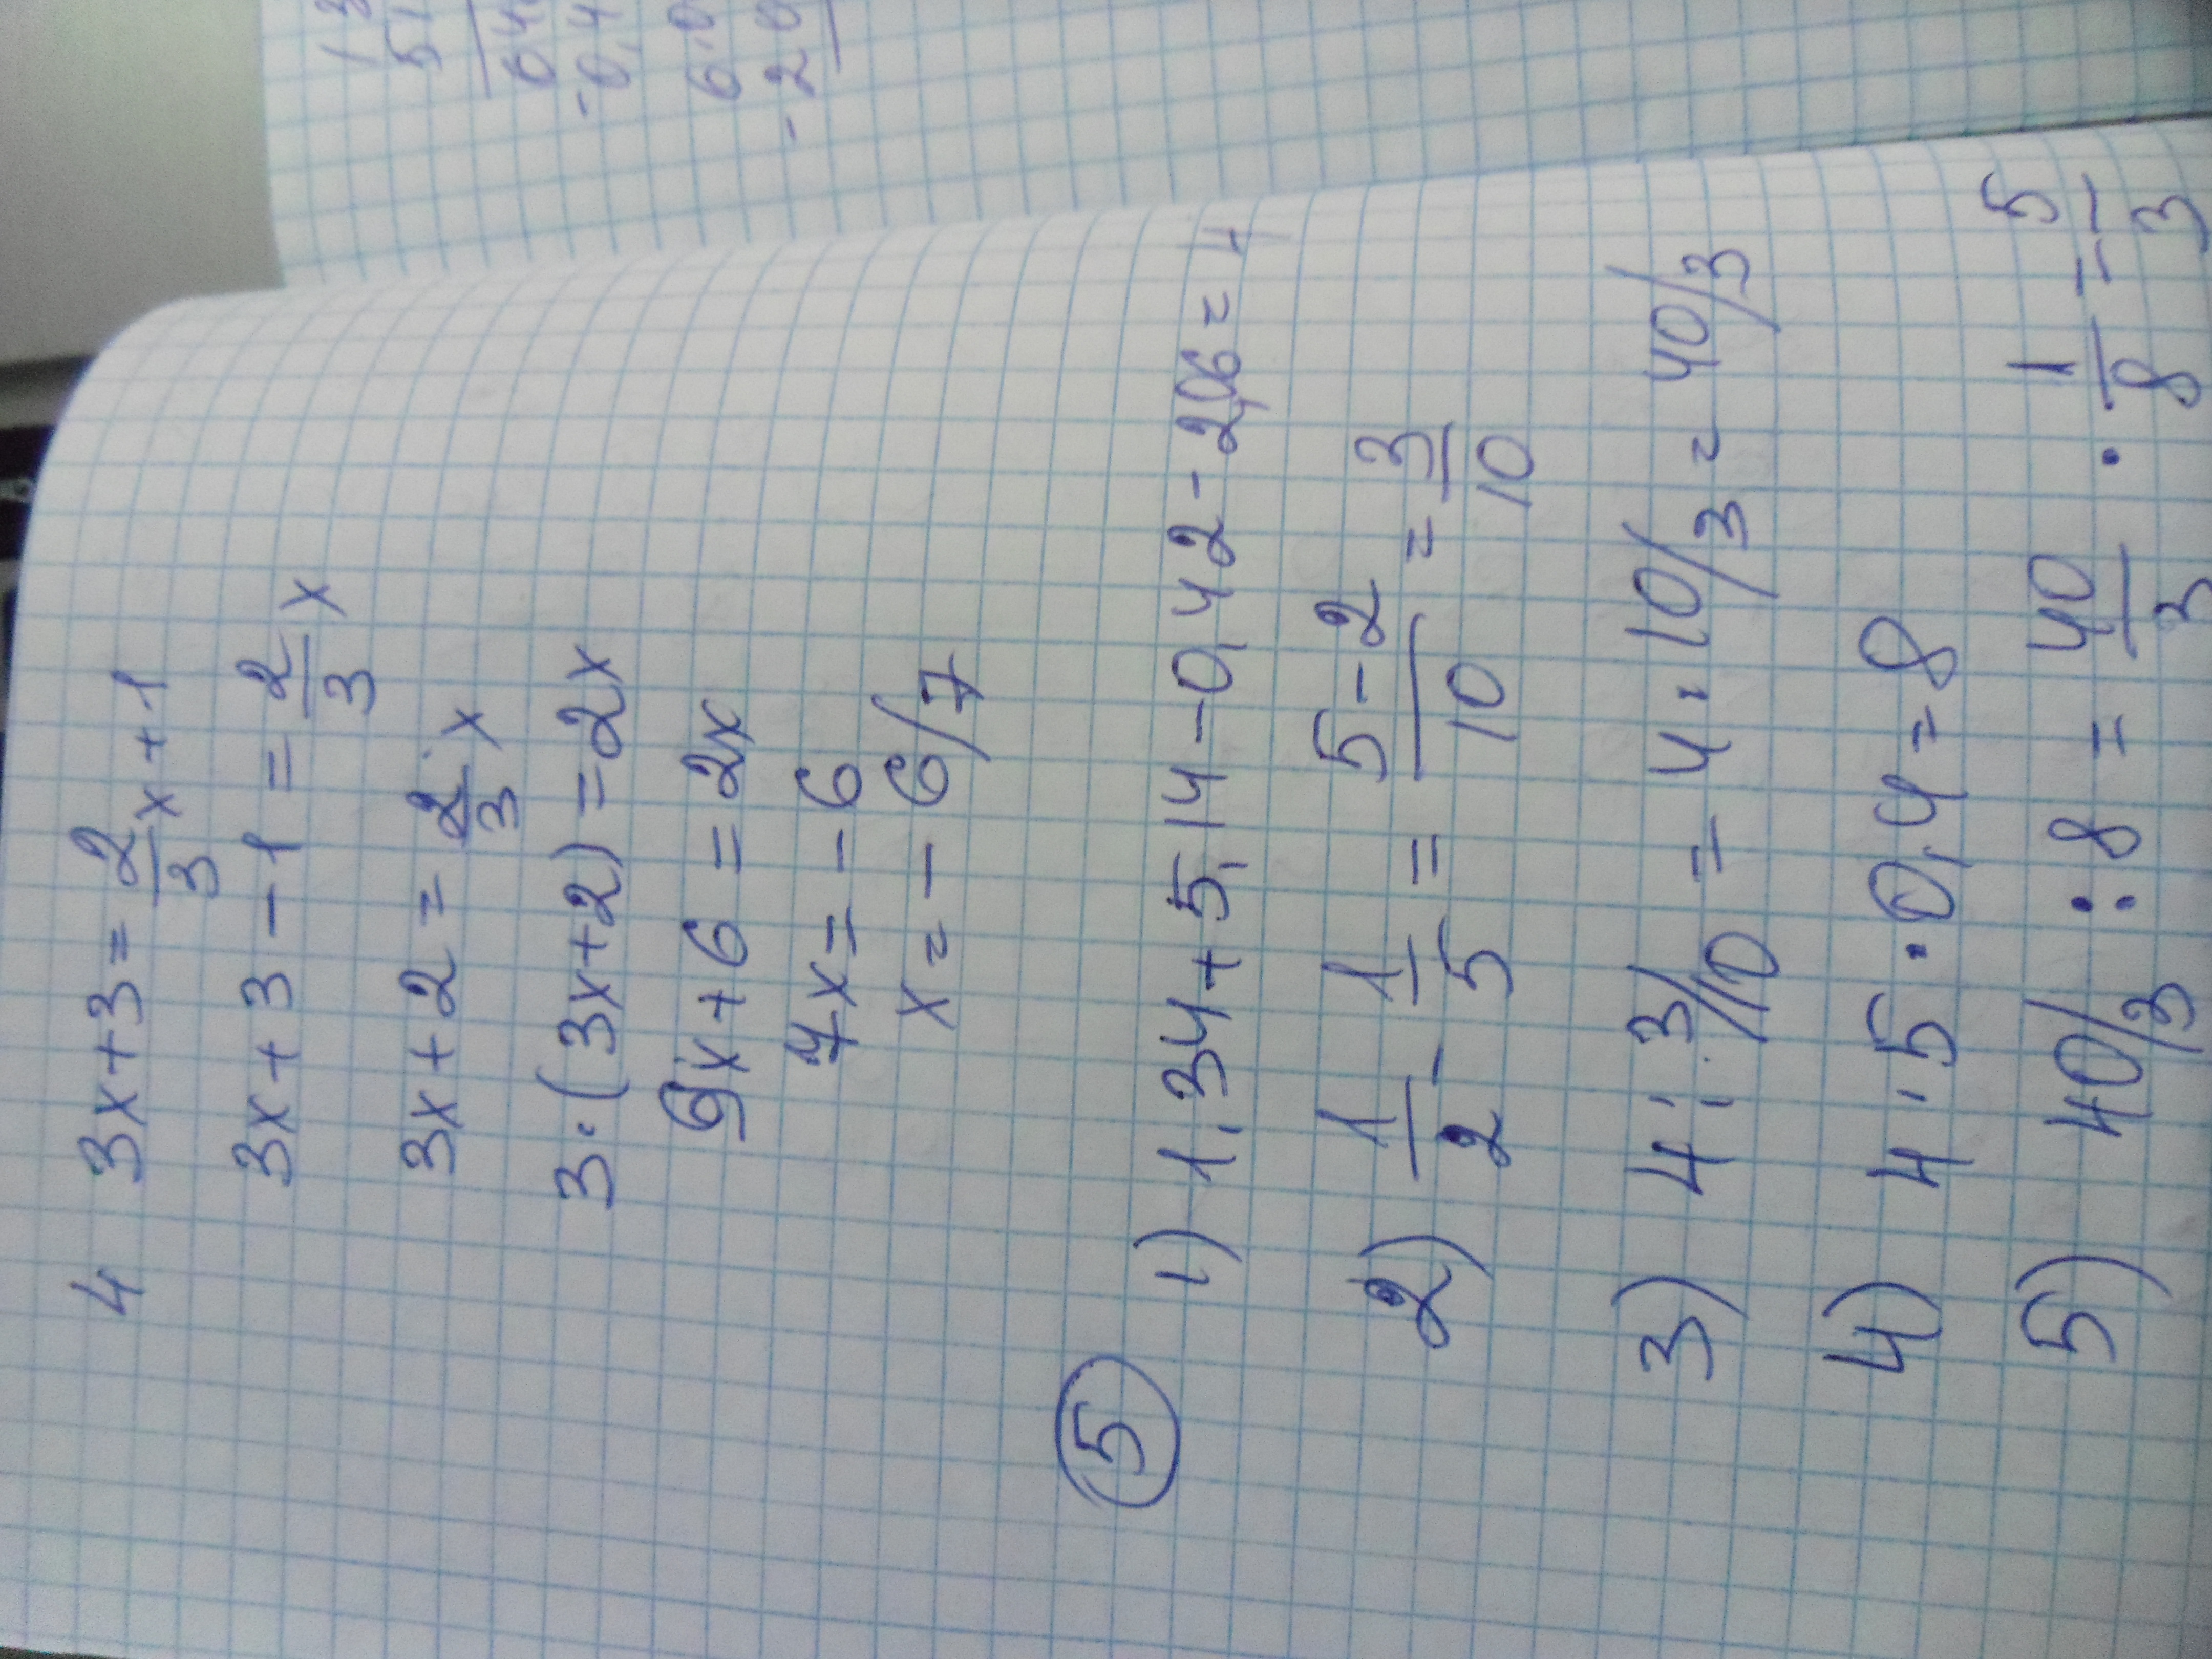 4 3x+3=2/3x+1
3x+3-1=2/3x
3x+2=2/3x
3·(3x+2)=2x
9x+6=2x
7x=-6
x=-6/7
5 1) 1,34+5,14-0,42-2,06=4
2) 1/2-1/5=5-2/10=3/10
3) 4:3/10=4·10/3=40/3
4) 4·5·0,4=8
5) 40/3:8=40/3·1/8=5/3
6,0
-2,0